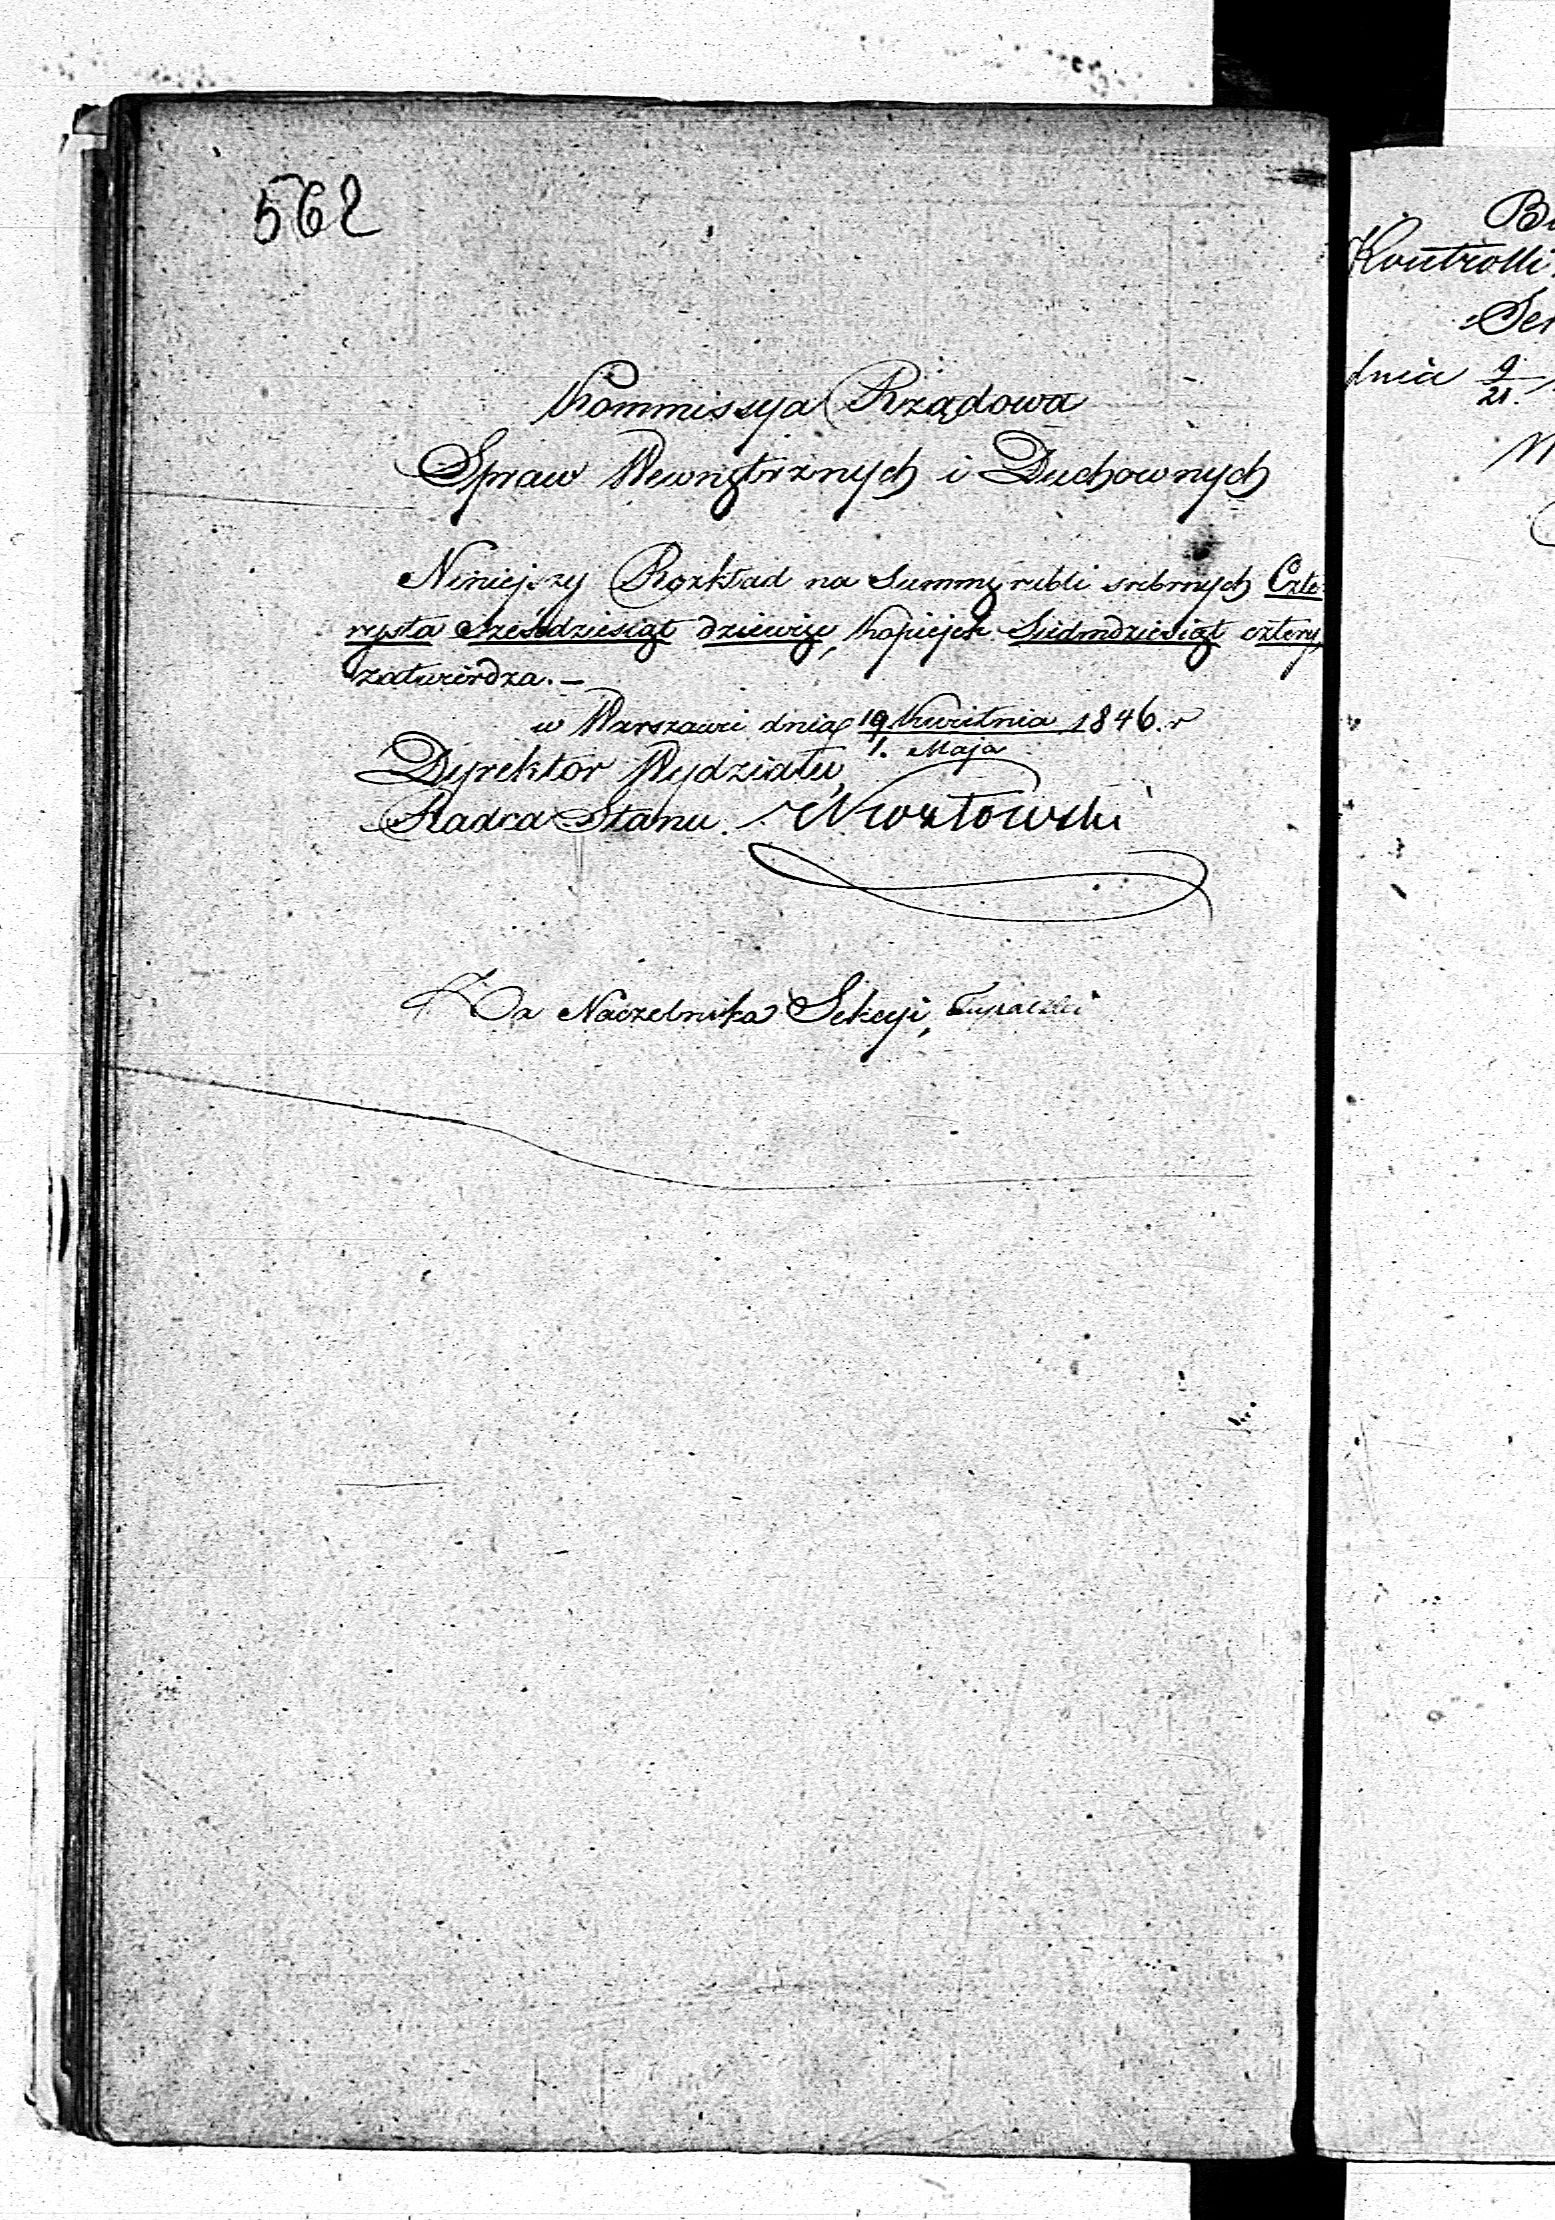 562
Kommissya Rządowa
Spraw Wewnętrznych i Duchownych
Niniejszy Rozkład na Summę rubli srebrnych Czte-
rysta sześćdziesiąt dziewięć, kopiejek Siedmdziesiąt cztery,
zatwierdza.—
w Warszawie dnia 19 Kwietnia 1846. r
1. Maja
Dyrektor Wydziału,
Radca Stanu.
Za Naczelnika Sekcyi,
Kontrolli
dnia 9
21.